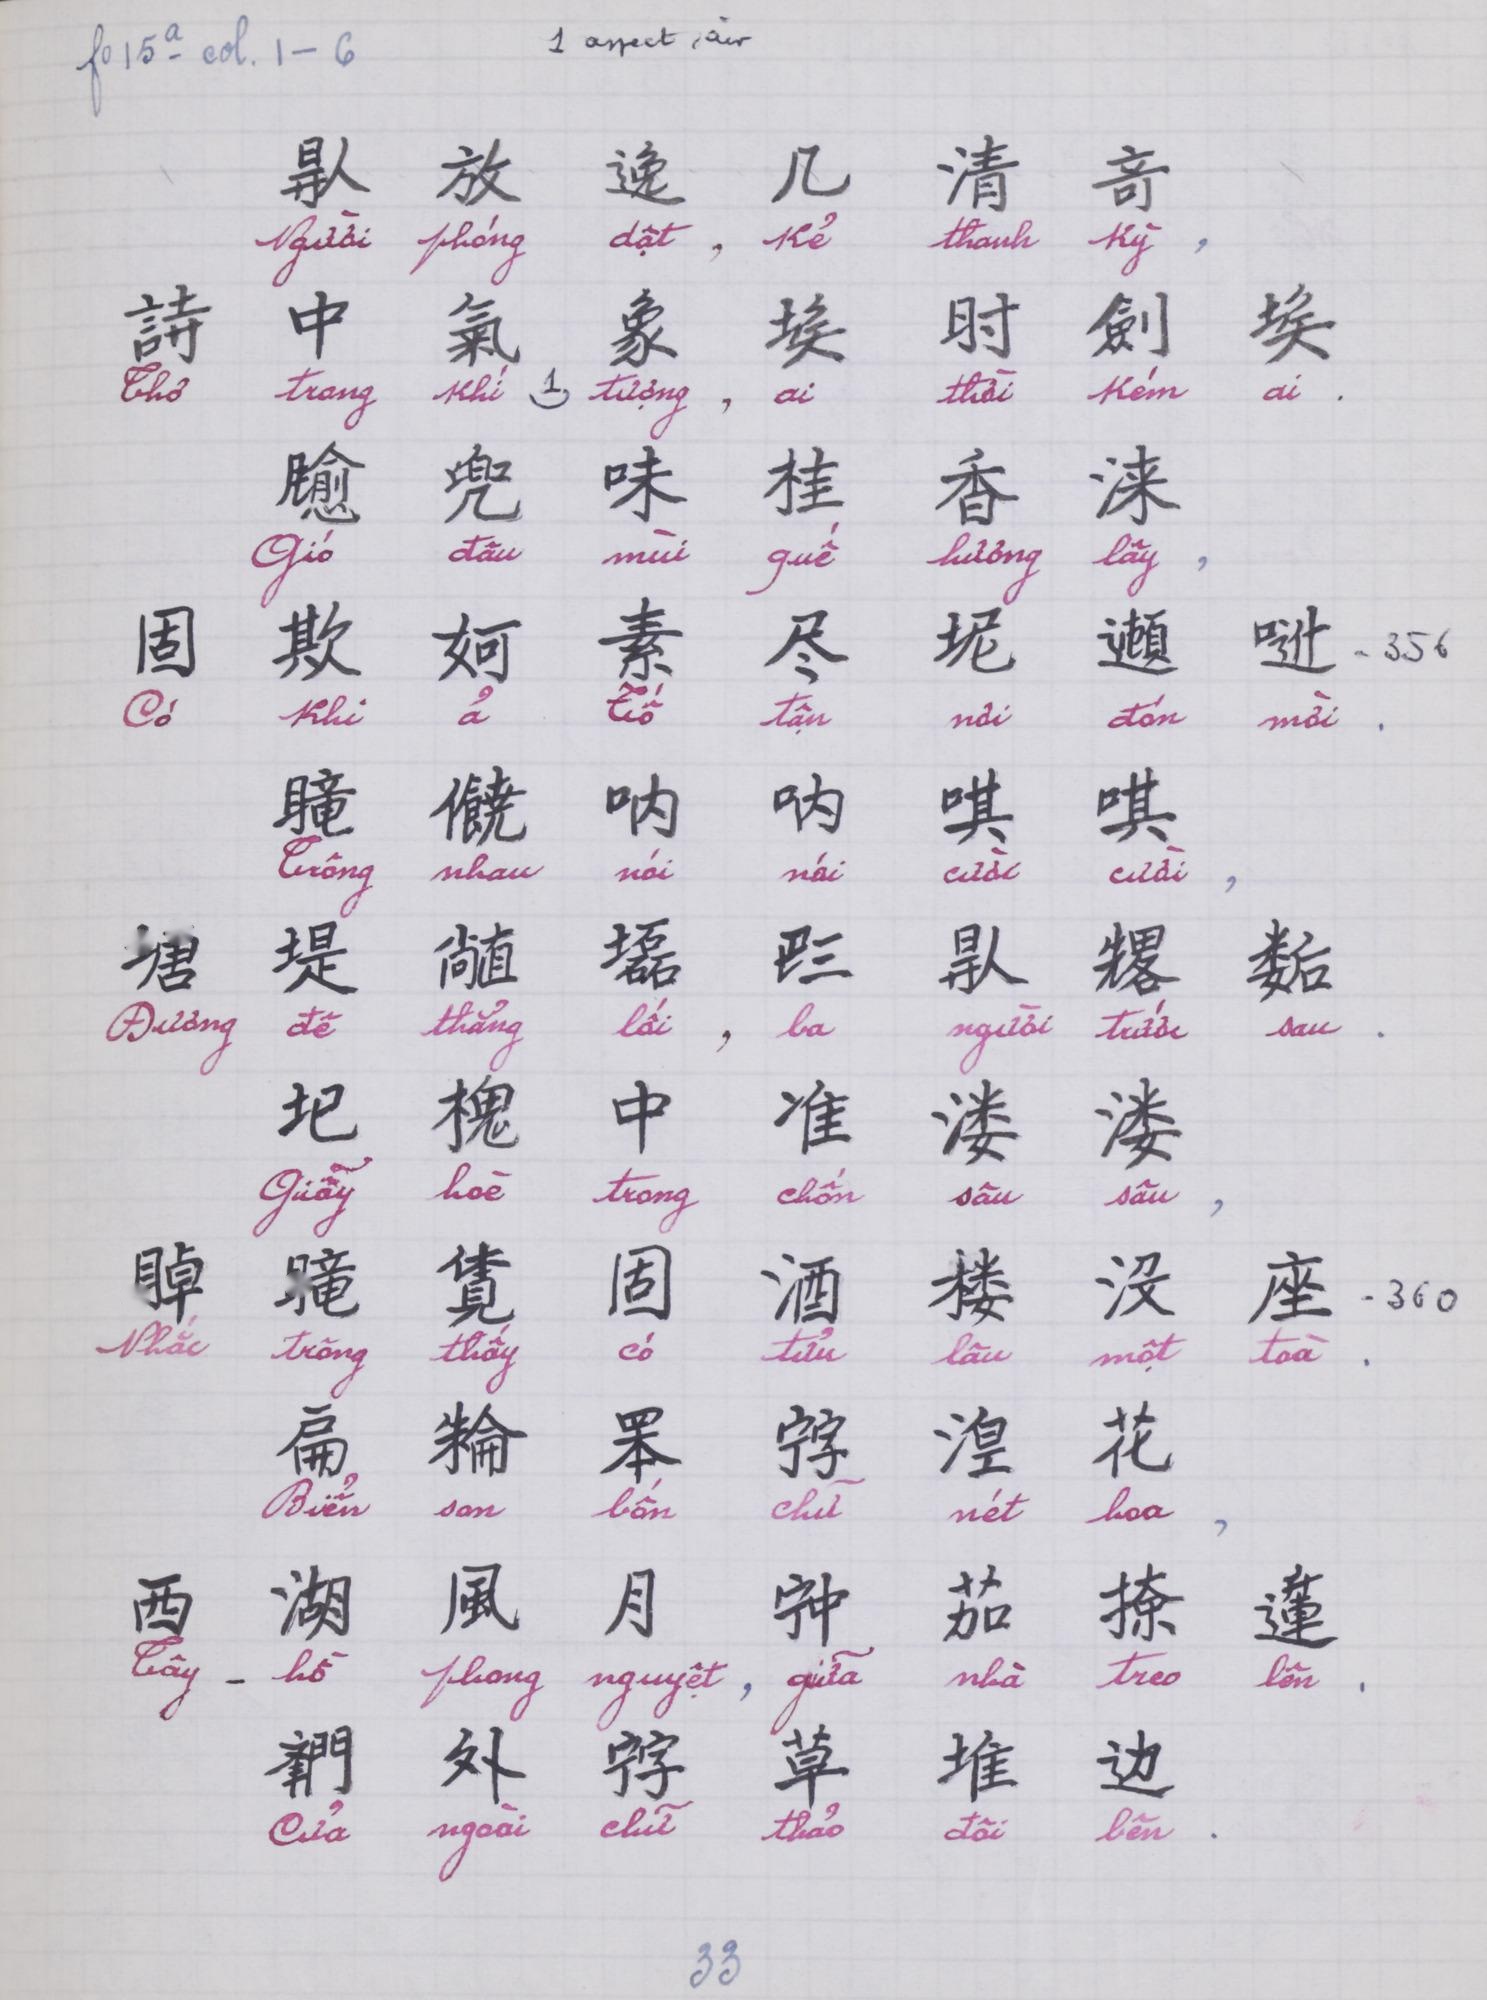 fº 15ª col. 1 – 6
1 aspect, air
放 逸 几 清 奇
Người phóng dật, kẻ thanh kỳ,
詩 中 氣 象 埃 时 劍 埃
Thơ trong khí 1 tượng, ai thời kém ai.
兜 味 桂 香 淶
Gió đâu mùi quế hương lẫy,
固 欺 妸 素 尽 坭 - 356
Có khi ả Tố tận nơi đón mời.
吶 吶 唭 唭
Trông nhau nói nói cười cười,
塘 堤
Đường đê thẳng lối, ba người trước sau.
圯 槐 中 准 溇 溇
Giẫy hoè trong chốn sâu sâu,
固 酒 楼 没 座 - 360
Nhắc trông thấy có tửu lâu một toà.
扁 湟 花
Biển son bốn chữ nét hoa,
西 湖 風 月 茄 撩 蓮
Tây - hồ phong nguyệt, giữa nhà treo lên.
外 草 堆 边
Cửa ngoài chữ thảo đôi bên.
33